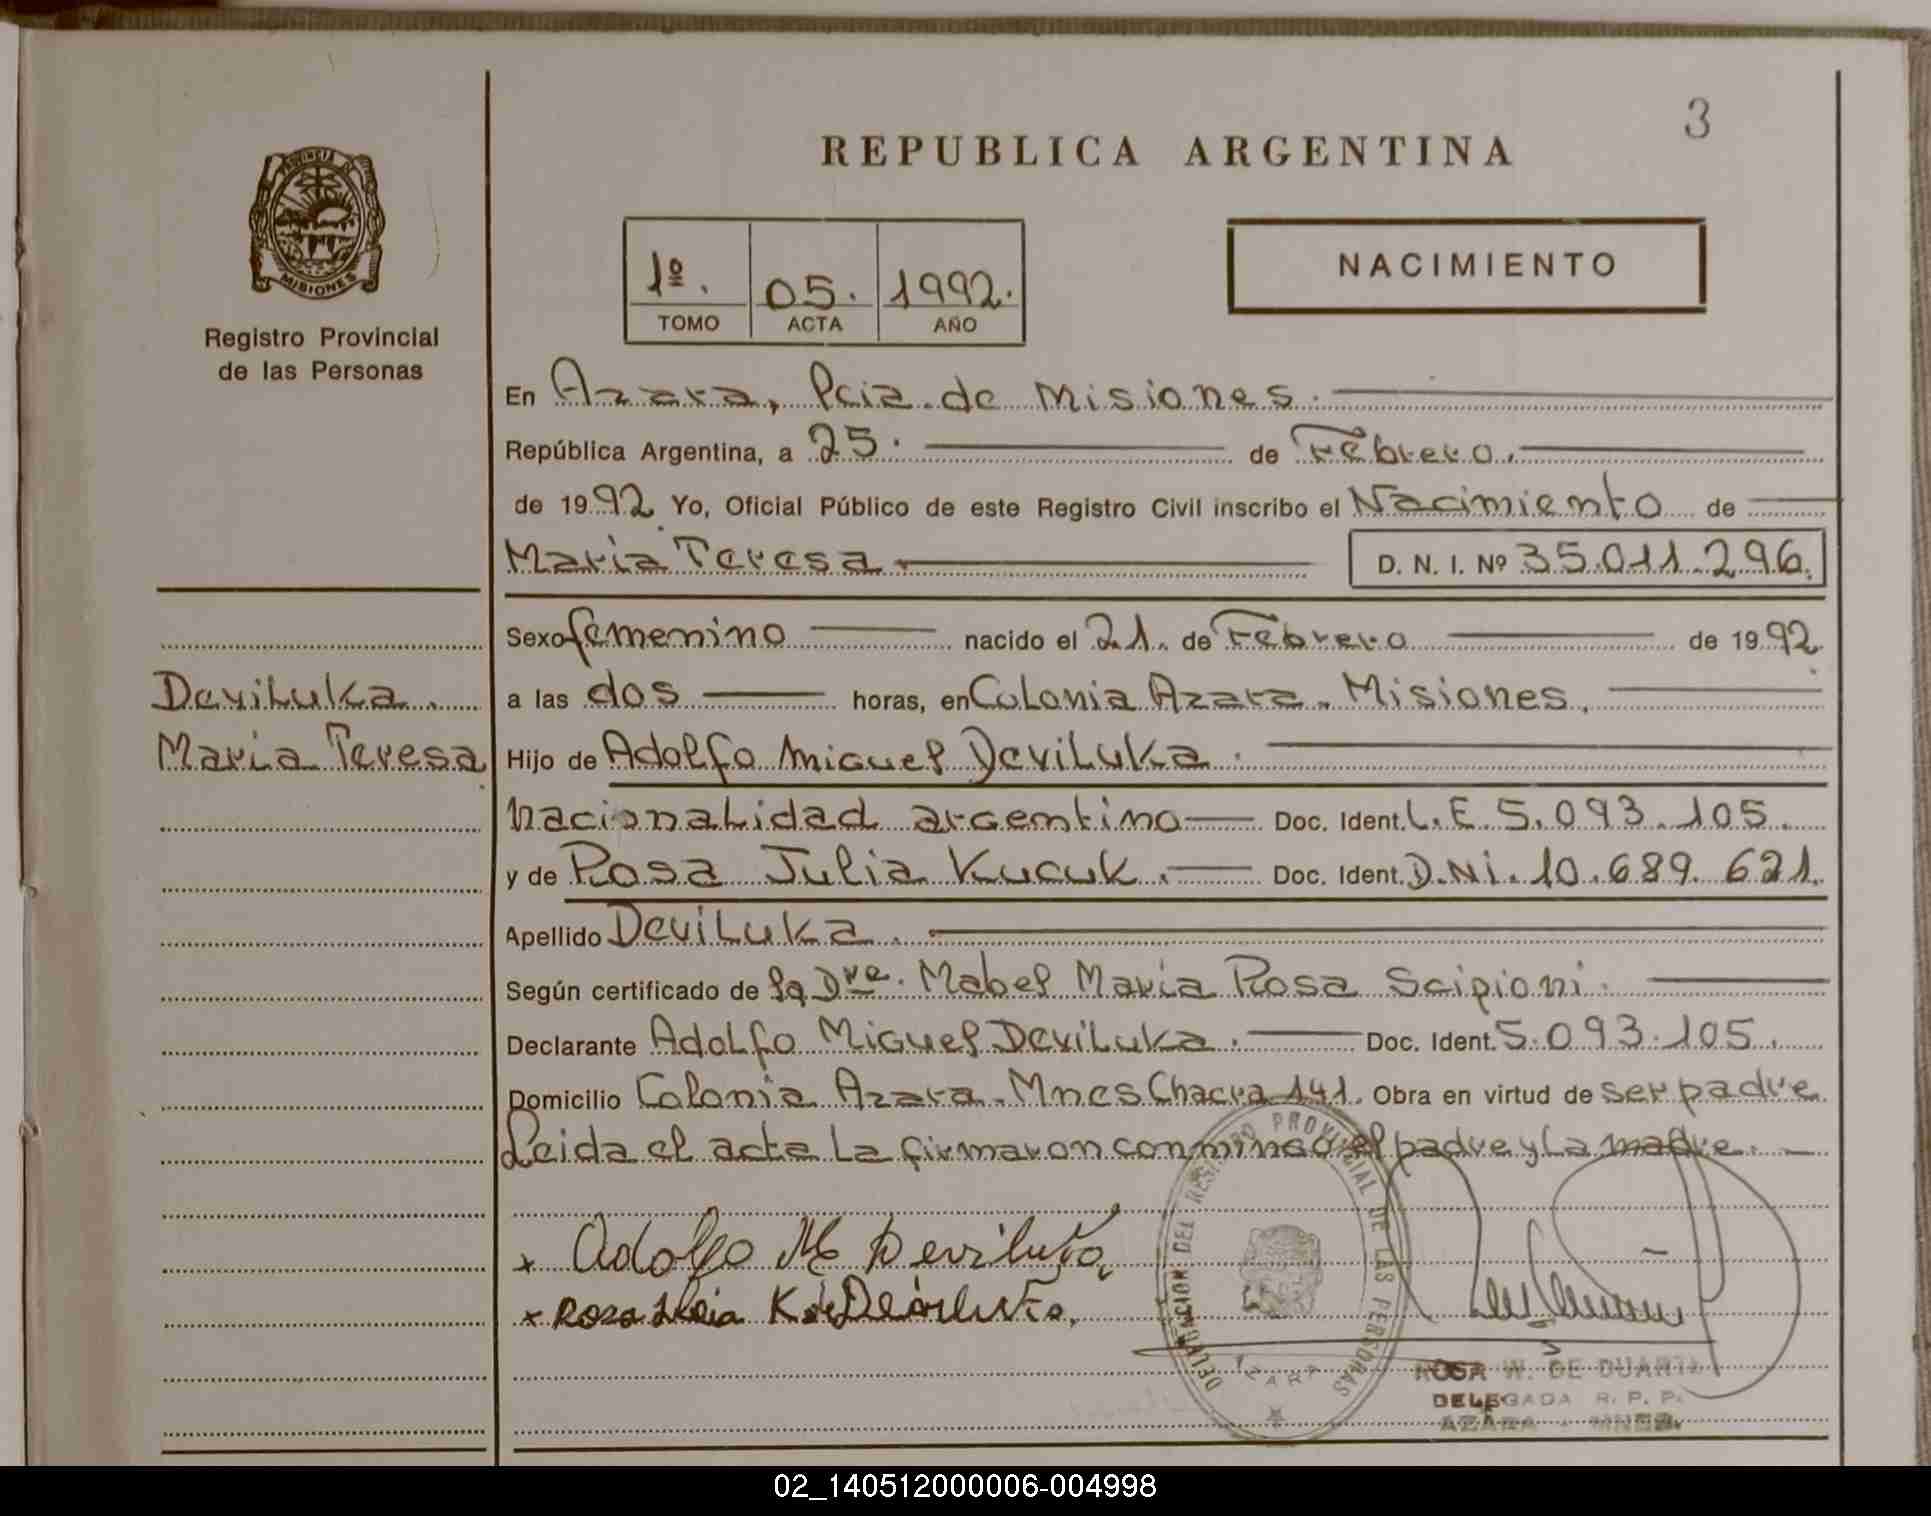 3
REPUBLICA ARGENTINA
PROVINCIA DE
MISIONES
Registro Provincial
de las Personas
1º. 05. 1992.
TOMO ACTA AÑO
NACIMIENTO
En Azara, Pcia. de Misiones.
República Argentina, a 25. de Febrero.
de 1992 Yo, Oficial Público de este Registro Civil inscribo el Nacimiento de
Maria Teresa D. N. I. Nº 35.011.296.
Sexo femenino nacido el 21. de Febrero de 1992.
Deviluka.
Maria Teresa
a las dos horas, en Colonia Azara. Misiones.
Hijo de Adolfo Miguel Deviluka.
Nacionalidad argentino Doc. Ident. L.E 5.093.105.
y de Rosa Julia Kucuk. Doc. Ident. D.Ni. 10.689.621.
Apellido Deviluka.
Según certificado de la Dra. Mabel Maria Rosa Scipioni.
Declarante Adolfo Miguel Deviluka. Doc. Ident. 5.093.105.
Domicilio Colonia Azara. Mnes Chacra 141. Obra en virtud de ser padre
Leida el acta la firmaron conmingo el padre y la madre.
x Adolfo M Deviluka
x Rosa Julia K de Deviluka.
DELEGACION DEL REGISTRO PROVINCIAL DE LAS PERSONAS
AZARA
ROSA W. DE DUARTE
DELEGADA R. P. P.
AZARA - MNES.
02_140512000006-004998